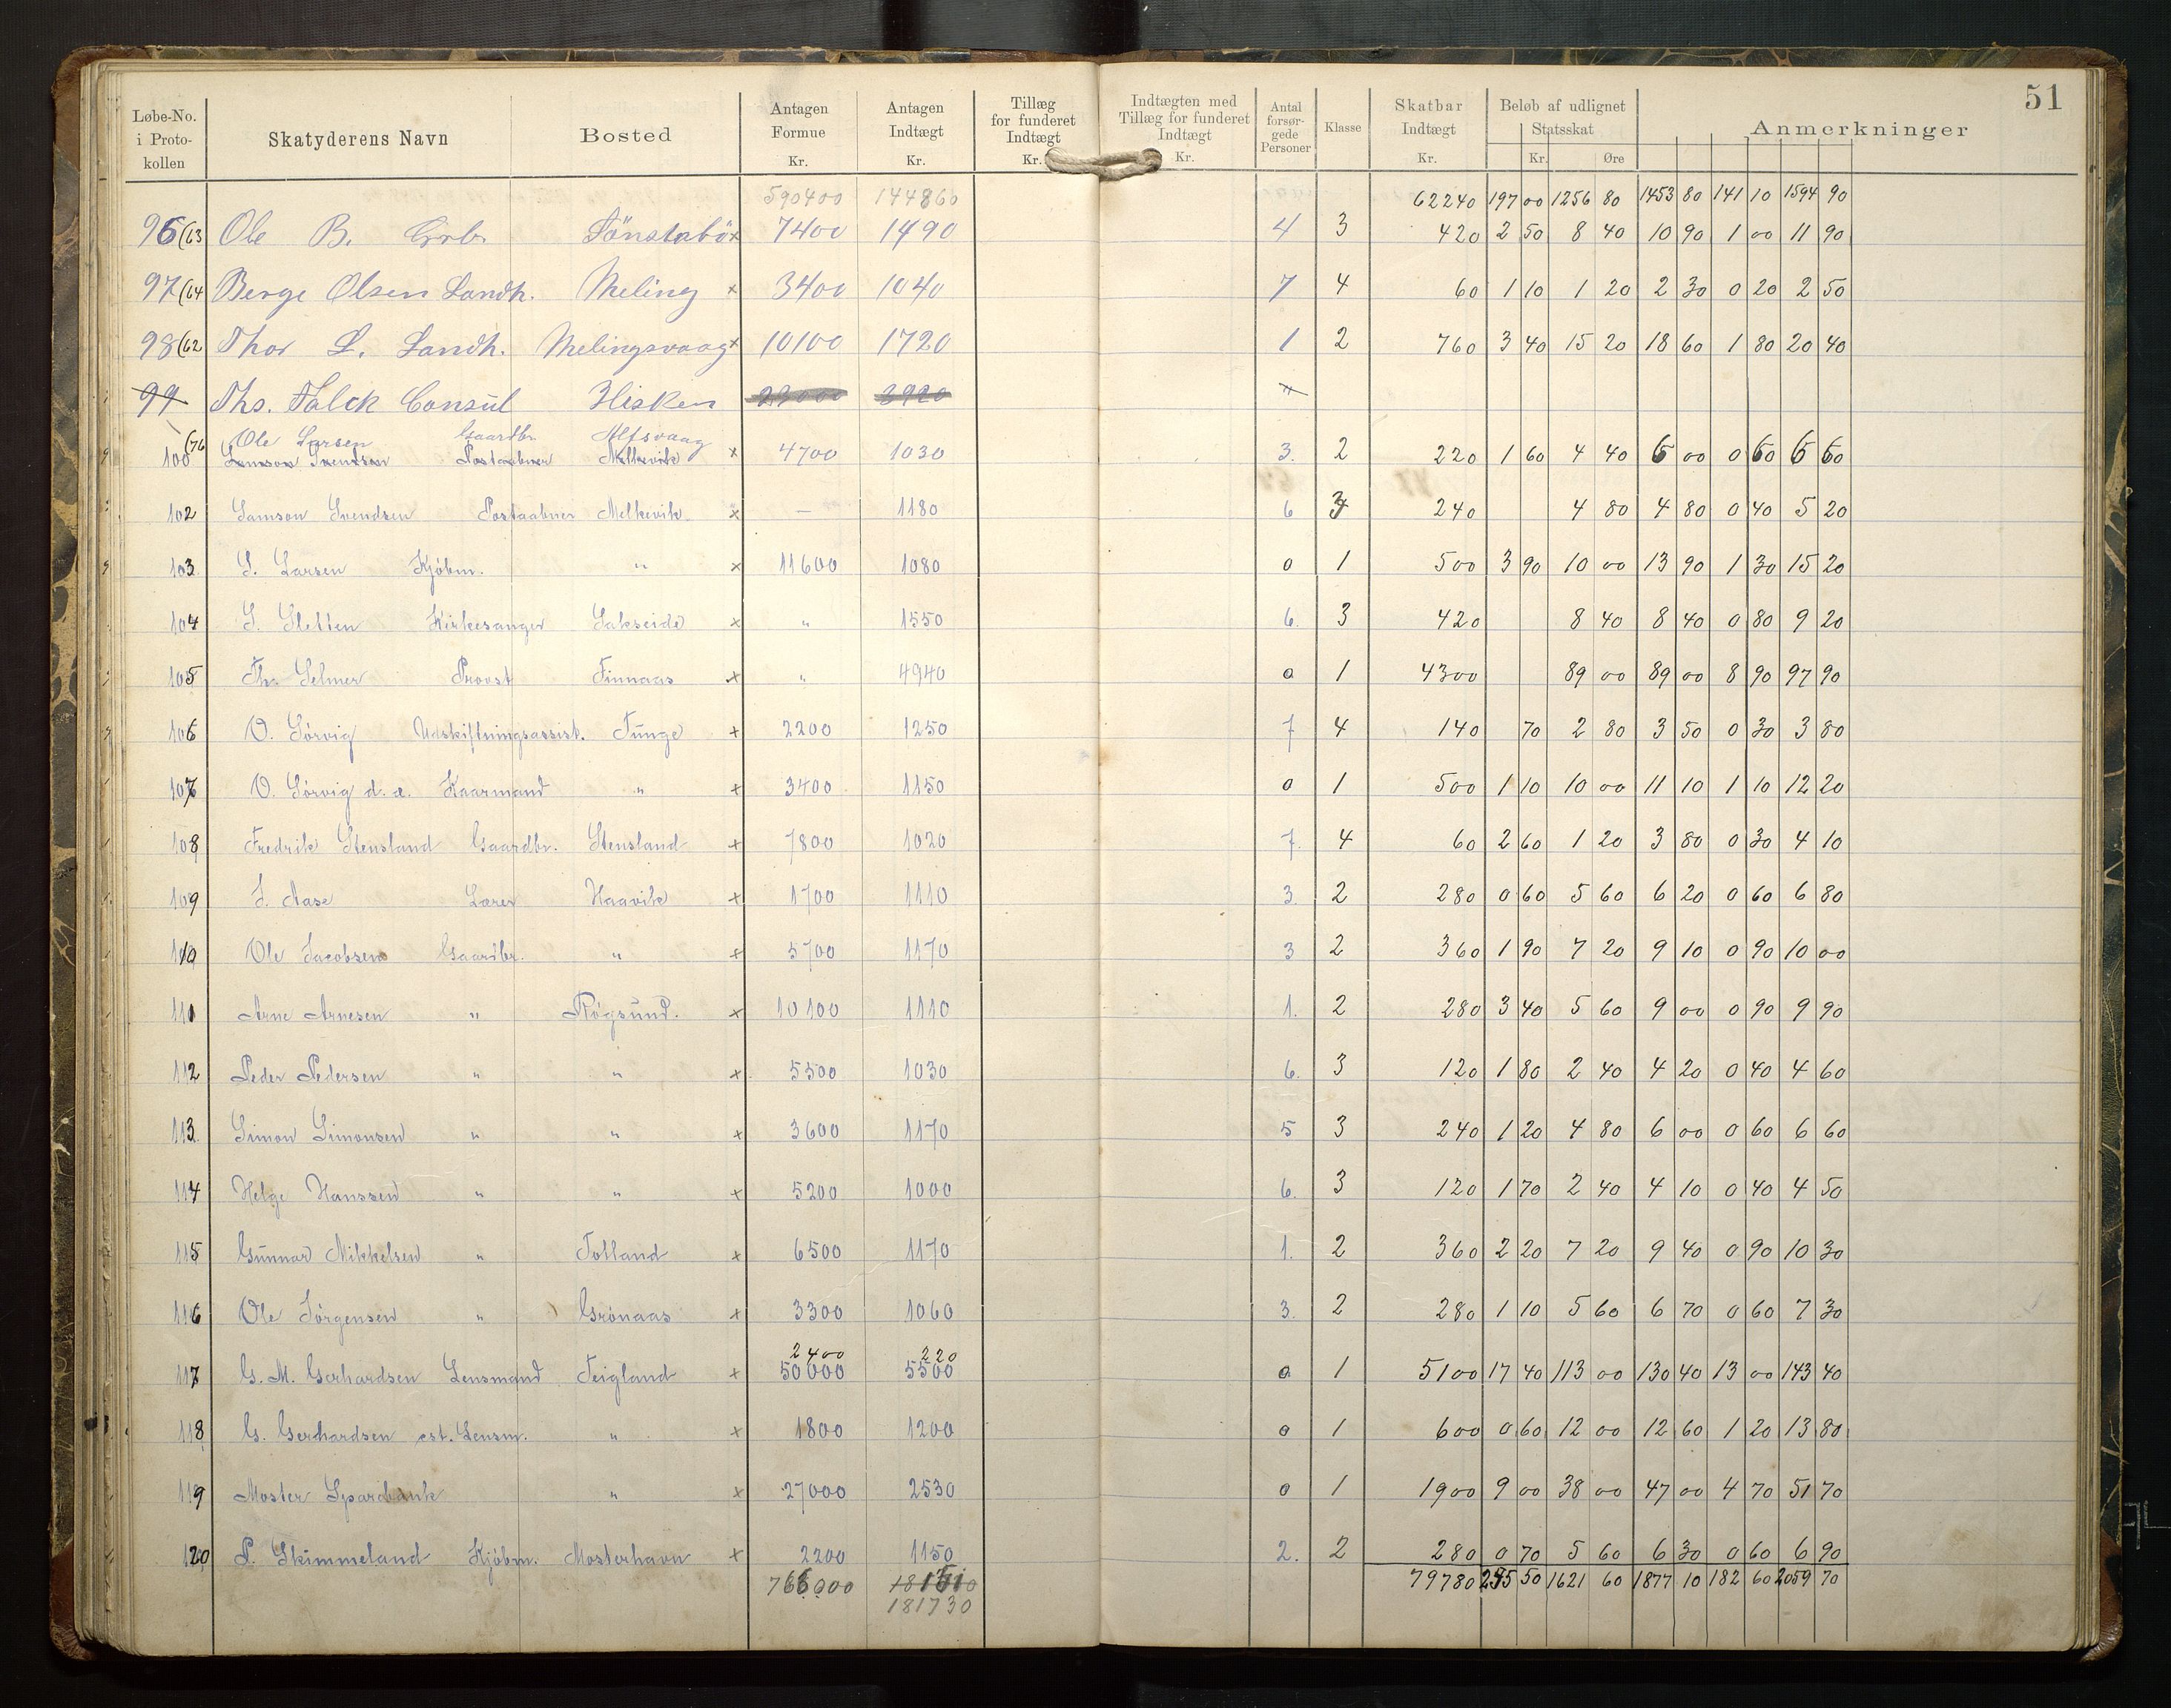 51
Løbe-No. i Proto-kollen Skatyderens Navn Bosted Antagen Formue Kr. Antagen Indtægt Kr. Tillæg for funderet Indtægt Kr. Indtægten med Tillæg for funderet Indtægt Kr. Antal forsør-gede Personer Klasse Skatbar Indtægt Kr. Beløb af udlignet Statsskat Kr. Øre Anmerkninger
590400 144860 62240 197 00 1256 80 1453 80 141 10 1594 90
96 (63 Ole B. Grb. x 7400 1490 4 3 420 2 50 8 40 10 90 1 00 11 90
97 (64 Berge Olsen Landh. Meling x 3400 1040 7 4 60 1 10 1 20 2 30 0 20 2 50
98 (62 Thor L. Landh. Melingsvaag x 10100 1720 1 2 760 3 40 15 20 18 60 1 80 20 40
99 Ths. Falck Consul Hisken 3920 "
(76 Ole Larsen Gaardbr.
100 Samson Svendsen Postaabner Melkevik x 4700 1030 3. 2 220 1 60 4 40 6 00 0 60 6 60
102 Samson Svendsen Postaabner Melkevik x — 1180 6 3 240 4 80 4 80 0 40 5 20
103 S. Larsen Kjøbm. " x 11600 1080 0 1 500 3 90 10 00 13 90 1 30 15 20
104 S. Sletten Kirkesanger Sakseide x " 1550 6. 3 420 8 40 8 40 0 80 9 20
105 Th. Selmer Provst Finnaas x " 4940 0 1 4300 89 00 89 00 8 90 97 90
106 O. Sørvig Udskiftningsassist. Tunge x 2200 1250 7 4 140 70 2 80 3 50 0 30 3 80
107 O. Sørvig d. æ. Kaarmand " x 3400 1150 0 1 500 1 10 10 00 11 10 1 10 12 20
108 Fredrik Stensland Gaardbr. Stensland x 7800 1020 7. 4 60 2 60 1 20 3 80 0 30 4 10
109 Aase Lærer Haavik x 1700 1110 3. 2 280 0 60 5 60 6 20 0 60 6 80
110 Ole Jacobsen Gaardbr. " x 5700 1170 3 2 360 1 90 7 20 9 10 0 90 10 00
111 Arne Arnesen " Røgsund. x 10100 1110 1. 2 280 3 40 5 60 9 00 0 90 9 90
112 Peder Pedersen " " x 5500 1030 6. 3 120 1 80 2 40 4 20 0 40 4 60
113 Simon Simonsen " " x 3600 1170 5 3 240 1 20 4 80 6 00 0 60 6 60
114 Helge Hanssen " " x 5200 1000 6. 3 120 1 70 2 40 4 10 0 40 4 50
115 Gunnar Mikkelsen " Totland x 6500 1170 1. 2 360 2 20 7 20 9 40 0 90 10 30
116 Ole Jørgensen " Grønaas x 3300 1060 3. 2 280 1 10 5 60 6 70 0 60 7 30
2400 220
117 G. M. Gerhardsen Lensmand Teigland x 50000 5500 0 1 5100 17 40 113 00 130 40 13 00 143 40
118 G. Gerhardsen cst. Lensm. " x 1800 1200 0 1 600 0 60 12 00 12 60 1 20 13 80
119 Moster Sparebank " x 27000 2530 0 1 1900 9 00 38 00 47 00 4 70 51 70
120 P. Skimmeland Kjøbm. Mosterhavn x 2200 1150 2. 2 280 0 70 5 60 6 30 0 60 6 90
79780 50 1621 60 1877 10 182 60 2059 70
181730